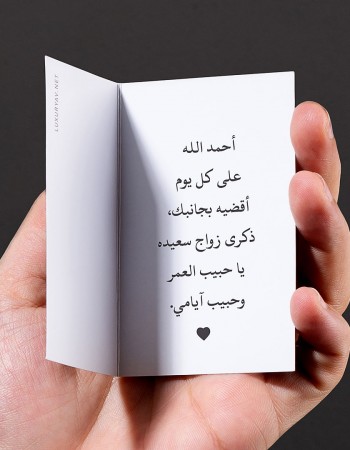 أحمد الله
على كل يوم
أقضيه بجانبك،
ذكرى زواج سعيده
يا حبيب العمر
وحبيب آيامي.